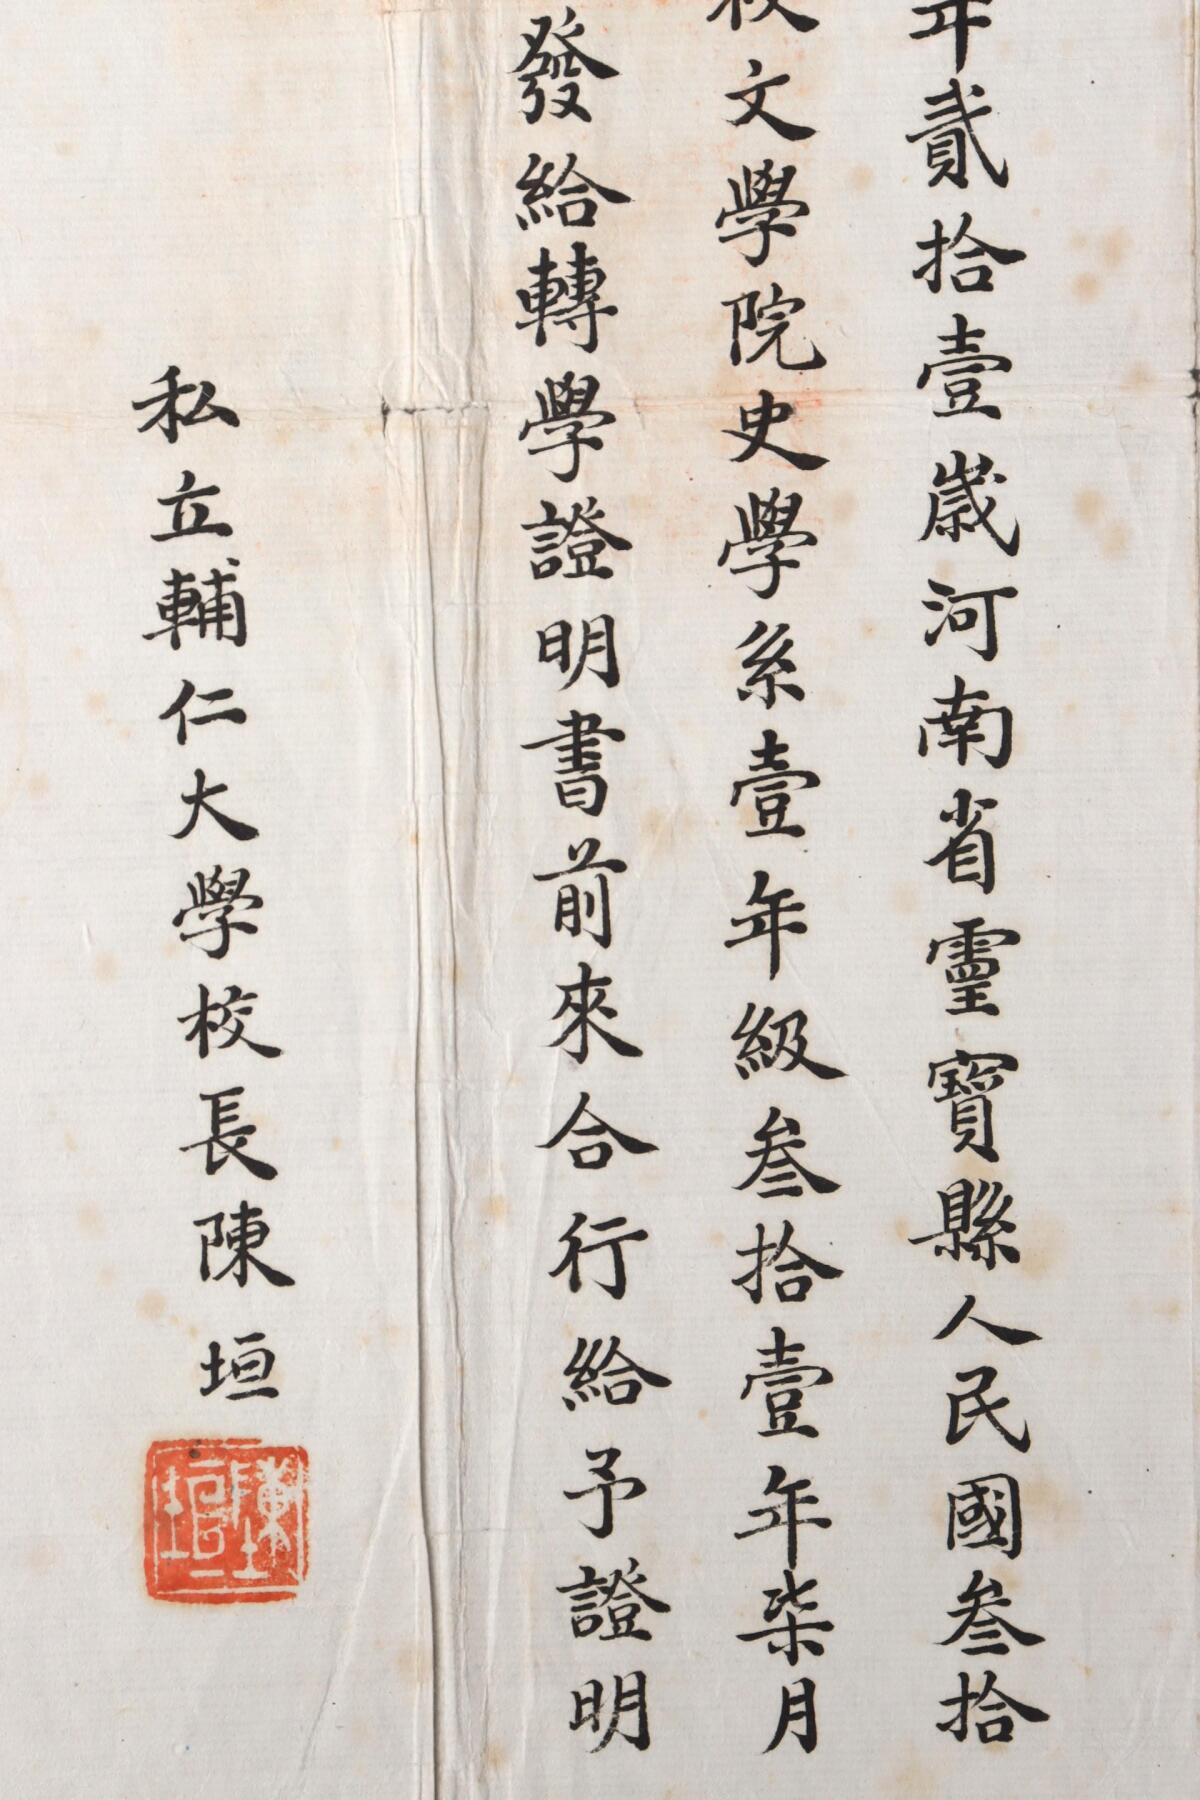 年貳拾壹歲河南省靈寶縣人民國叁拾
校文學院史學系壹年級叁拾壹年柒月
發給轉學證明書前來合行給予證明
私立輔仁大學校長陳垣
陳垣